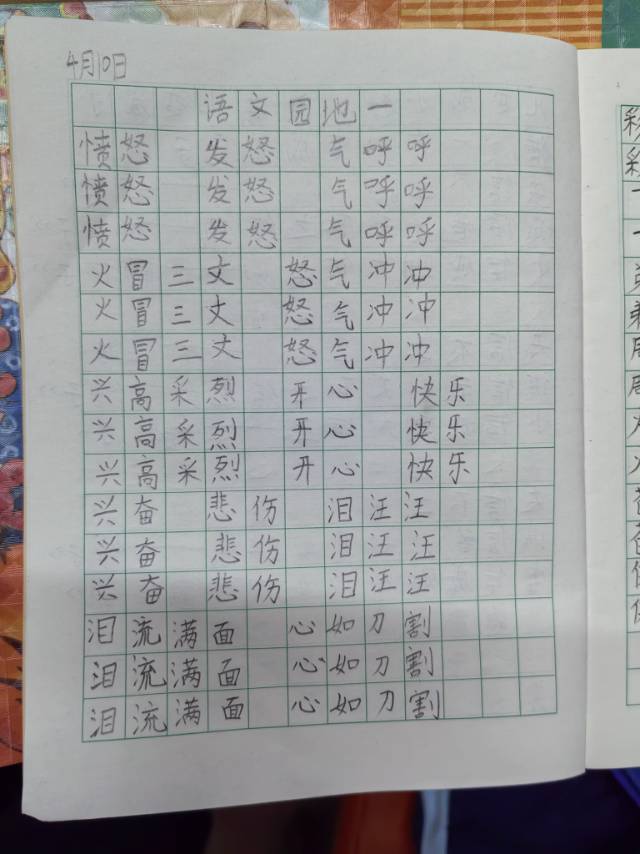 4月10日
语文园地一
愤怒 发怒 气呼呼
愤怒 发怒 气呼呼
愤怒 发怒 气呼呼
火冒三丈 怒气冲冲
火冒三丈 怒气冲冲
火冒三丈 怒气冲冲
兴高采烈 开心 快乐
兴高采烈 开心 快乐
兴高采烈 开心 快乐
兴奋 悲伤 泪汪汪
兴奋 悲伤 泪汪汪
兴奋 悲伤 泪汪汪
泪流满面 心如刀割
泪流满面 心如刀割
泪流满面 心如刀割